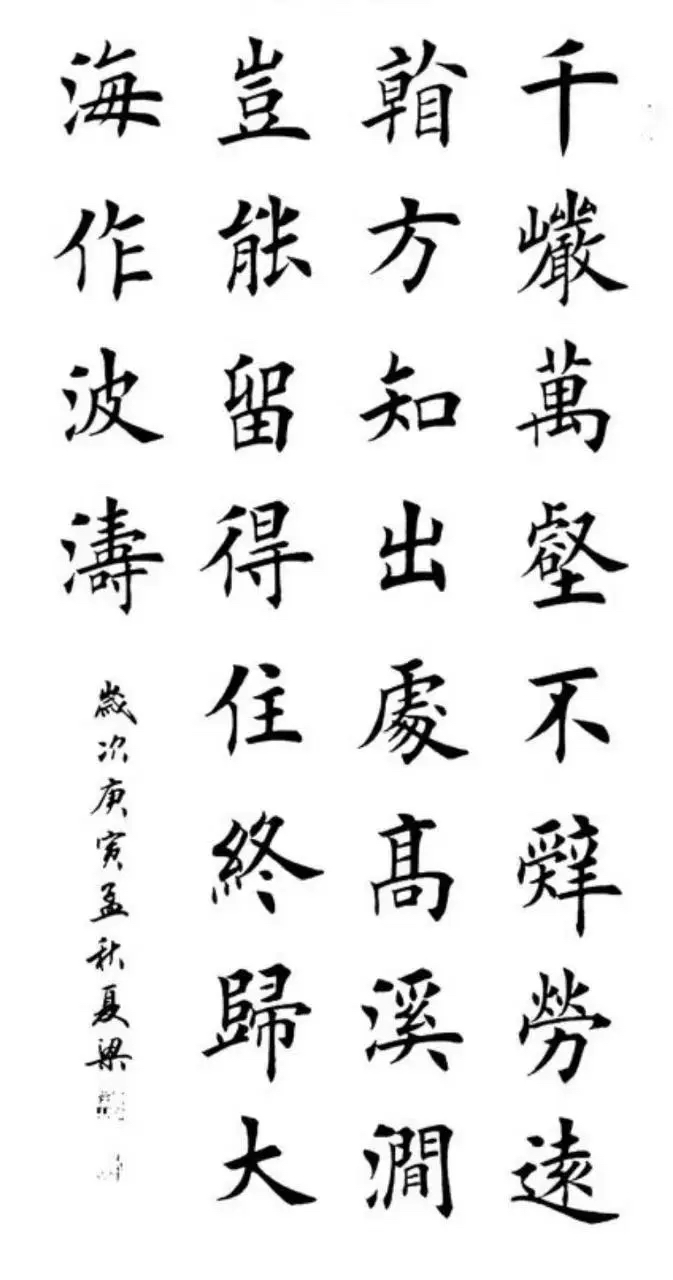 千巗萬壑不辭勞遠
看方知出處髙溪澗
豈能留得住終歸大
海作波濤
歲次庚寅孟秋夏梁